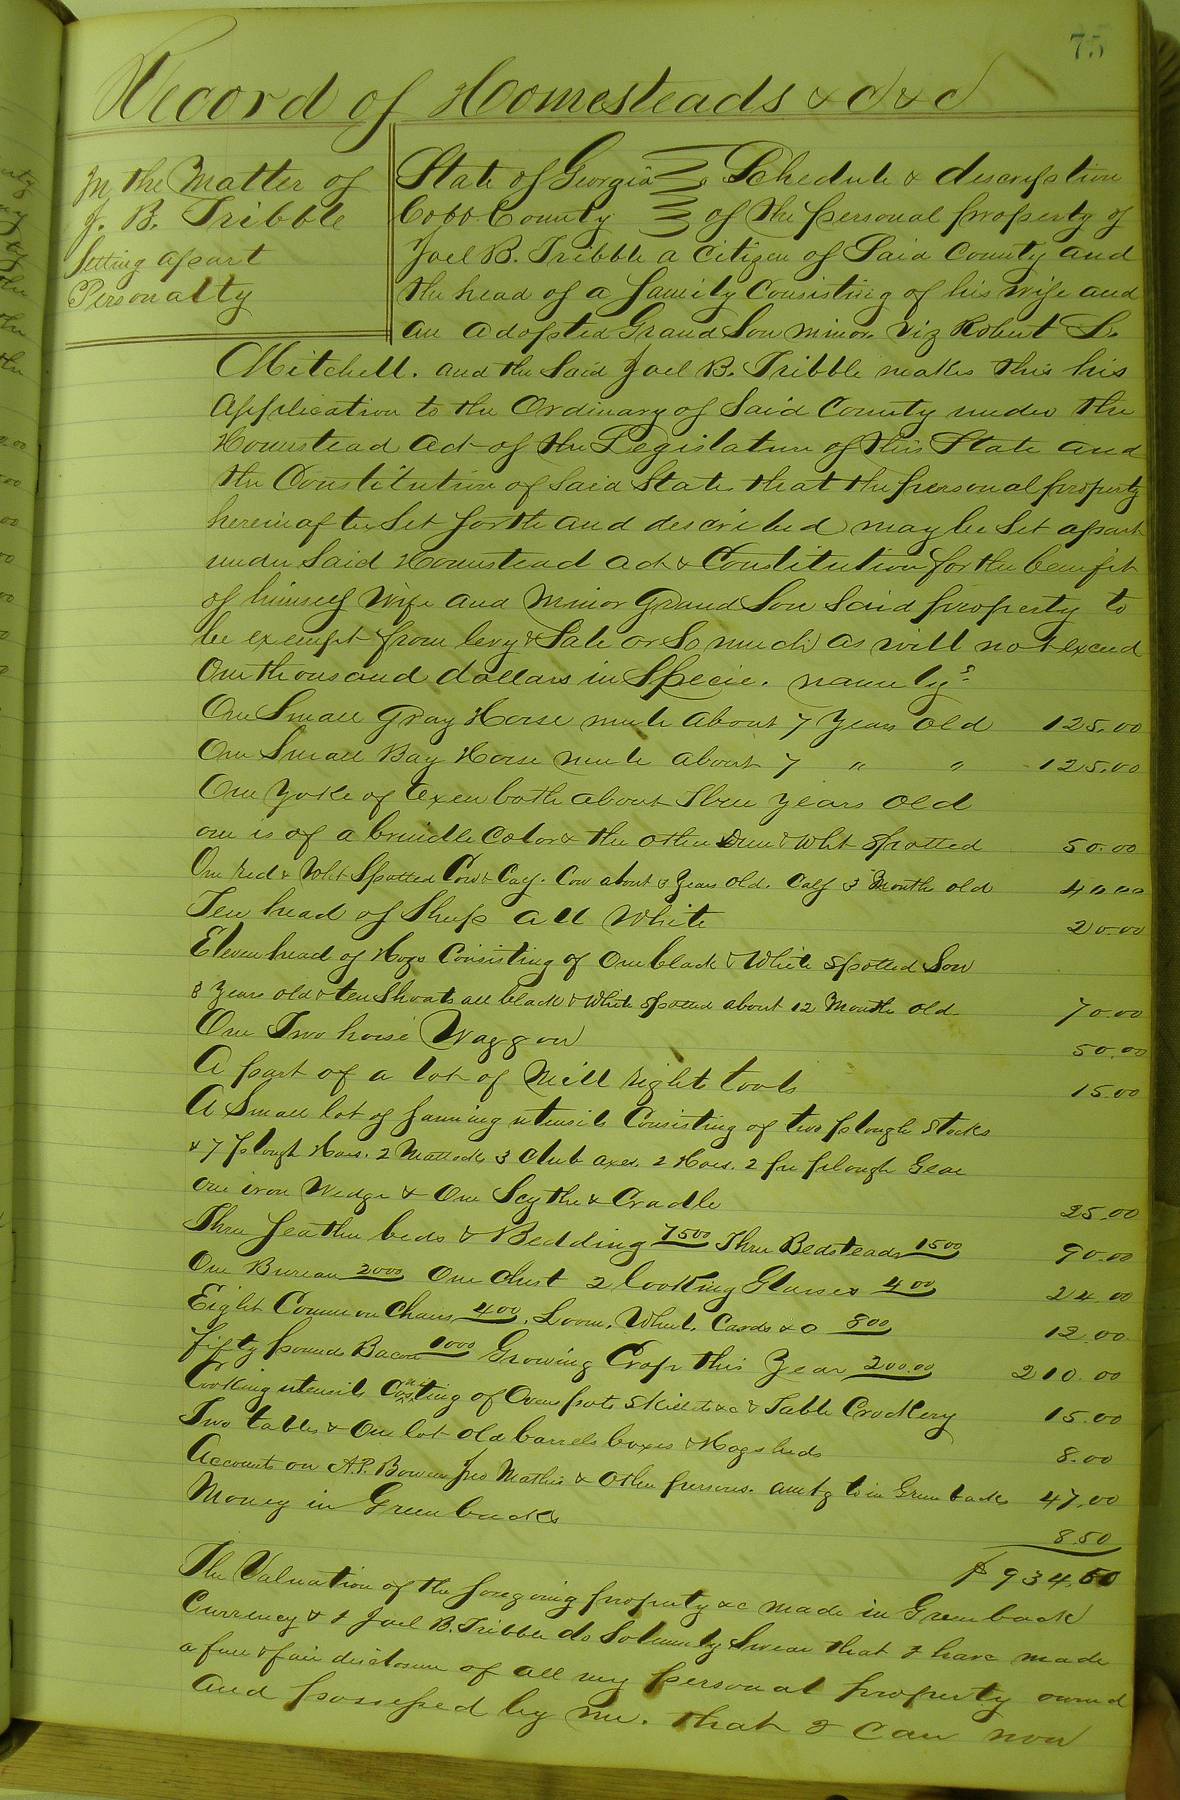 75
Record of Homesteads &c &c
In the Matter of
J. B. Tribble
Setting apart
Personalty
State of Georgia } Schedule & description
Cobb County } of the personal property of
Joel B. Tribble a citizen of Said County and
the head of a family Consisting of his wife and
an adopted Grand Son minor viz Robert L.
Mitchell. and the Said Joel B. Tribble makes this his
Application to the Ordinary of Said County under the
Homestead Act of the Legislature of this State and
the Constitution of Said State that the personal property
hereinafter Set forth and described may be Set apart
under Said Homestead Act & Constitution for the benefit
of himself Wife and Minor Grand Son Said property to
be exempt from levy & Sale or So much as will not exceed
One thousand dollars in Specie. namely:
One Small Gray Horse mule about 7 years old 125.00
One Small Bay Horse mule about 7 " " 125.00
One Yoke of Oxen both about three years old
one is of a brindle Color & the other Dun & Wht Spotted 50.00
One red & Wht Spotted Cow & Calf. Cow about 8 years old. Calf 3 Months old 40.00
Ten head of Sheep all White 20.00
Eleven head of Hogs Consisting of One black & White Spotted Sow
3 years old & ten Shoats all black & White Spotted about 12 Months old 70.00
One Two horse Waggon 50.00
A part of a lot of Mill right tools 15.00
A Small lot of farming utensils Consisting of two plough Stocks
& 7 plough Hoes. 2 Mattocks 3 Club axes. 2 Hoes. 2 pr plough Gear
one iron Wedge & One Scythe & Cradle 25.00
Three feather beds & Bedding 75 00 Three Bedsteads 15 00 90.00
One Bureau 20 00 One Chest 2 looking Glasses 4 00 24.00
Eight Common Chairs 4 00. Loom, Wheel, Cards &c 8 00 12.00
fifty pounds Bacon 10 00 Growing Crop this Year 200.00 210.00
Cooking utensils Consisting of Ovens pots Skillets &c & Table Crockery 15.00
Two tables & One lot old barrels boxes & Hogsheds 8.00
Accounts on A.P. Bowen Jno Mathis & Other persons. amtg to in Green backs 47.00
Money in Greenbacks 8.50
$934.50
The Valuation of the foregoing property &c made in Greenback
Currency & I Joel B. Tribble do Solemnly Swear that I have made
a full & fair disclosure of all my personal property owned
and possessed by me. that I can now